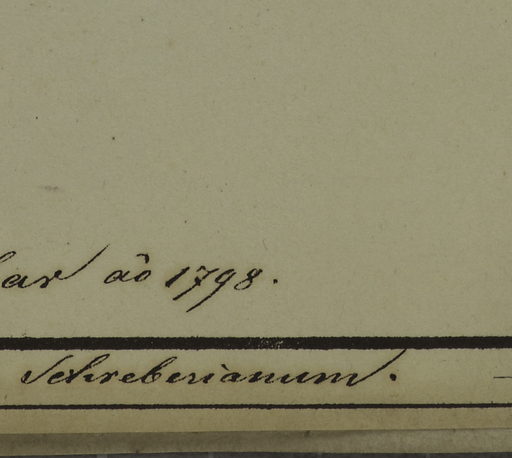 aô 1798.
Schreberianum.